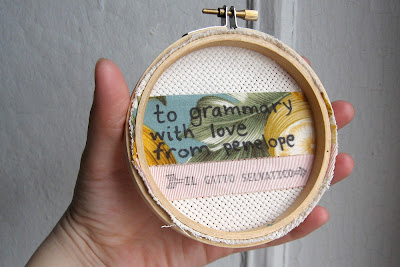 to grammary
with love
from penelope
IL GATTO SELVATICO